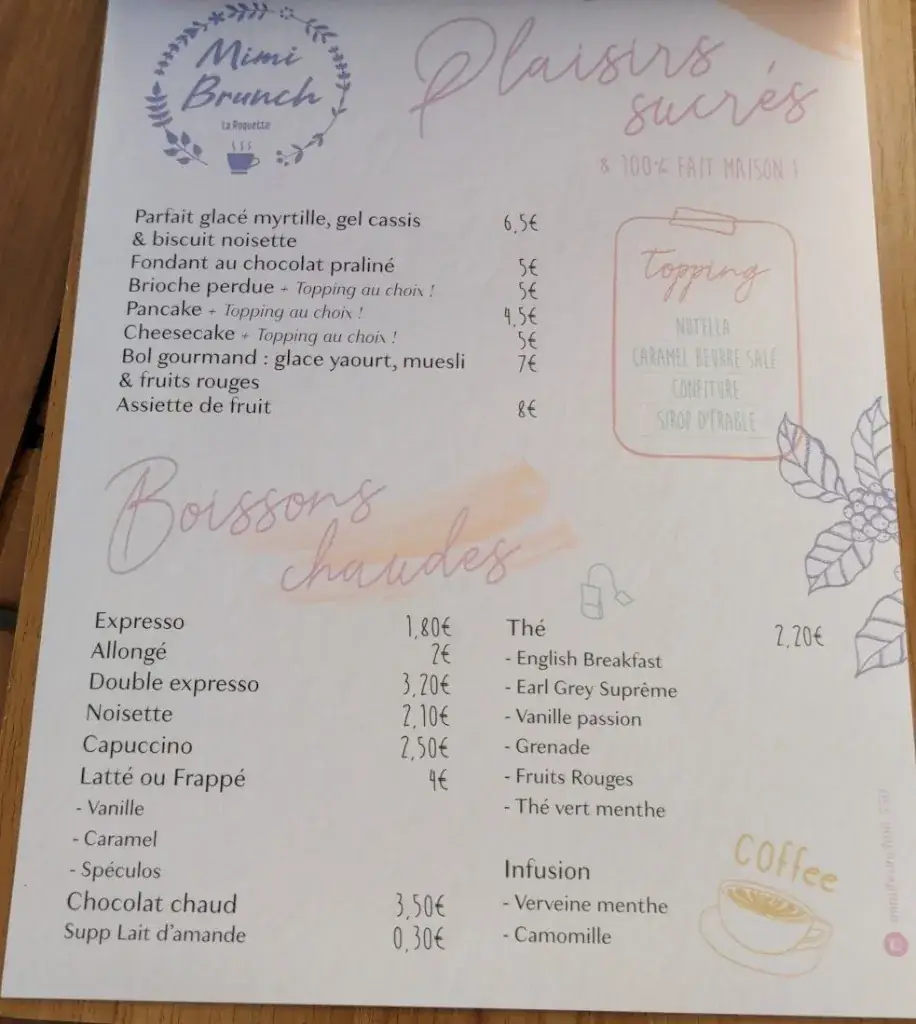 Mimi
Brunch
La Roquette
Plaisirs
sucrés
& 100% FAIT MAISON !
Parfait glacé myrtille, gel cassis 6,5€
& biscuit noisette
Fondant au chocolat praliné 5€
Brioche perdue + Topping au choix ! 5€
Pancake + Topping au choix ! 4,5€
Cheesecake + Topping au choix ! 5€
Bol gourmand : glace yaourt, muesli 7€
& fruits rouges
Assiette de fruit 8€
Topping
NUTELLA
CARAMEL BEURRE SALÉ
CONFITURE
SIROP D'ÉRABLE
Boissons
chaudes
Expresso 1,80€
Allongé 2€
Double expresso 3,20€
Noisette 2,10€
Capuccino 2,50€
Latté ou Frappé 4€
- Vanille
- Caramel
- Spéculos
Chocolat chaud 3,50€
Supp Lait d'amande 0,30€
Thé 2,20€
- English Breakfast
- Earl Grey Suprême
- Vanille passion
- Grenade
- Fruits Rouges
- Thé vert menthe
Infusion
- Verveine menthe
- Camomille
coffee